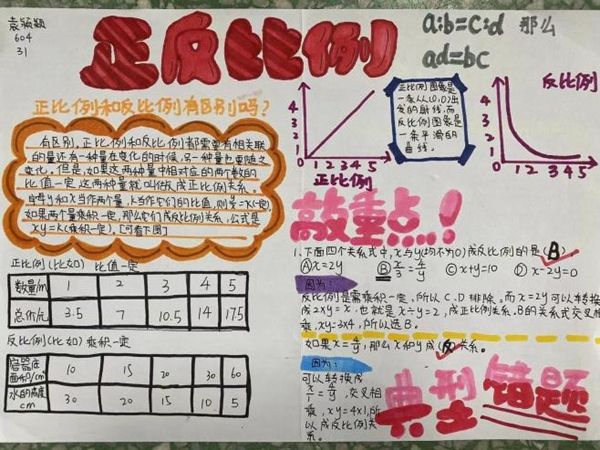 袁颖颖
604
31
正反比例
a:b=c:d 那么
ad=bc
正比例和反比例有区别吗？
有区别，正比例和反比例都需要有相关联
的量还有一种量在变化的时候，另一种量也要随之
变化，但是，如果这两种量中相对应的两个数的
比值一定，这两种量就叫做成正比例关系。
如果两个量乘积一定，那么它们成反比例关系，公式是
xy=k(乘积一定)，[可看下图]
4
3
2
1
0 1 2 3 4 5
正比例
正比例图象是
一条从(0,0)出
发的射线，而
反比例图象是
一条平滑的
曲线。
反比例
4
3
2
1
0 1 2 3 4 5
敲重点！
正比例(比如) 比值一定
数量/m 1 2 3 4 5
总价/元 3.5 7 10.5 14 17.5
反比例(比如)乘积一定
容器底面积/cm² 10 15 20 30 60
水的高度cm 30 20 15 10 5
1.下面四个关系式中，x与y(均不为0)成反比例的是(B)
Ⓐx=2y Ⓑx/3=4/y Ⓒx+y=10 Ⓓx-2y=0
因为：
反比例是需乘积一定，所以C.D排除。而x=2y可以转换
成2xy=x，也就是x÷y=2，成正比例关系.B的关系式交叉相
乘，xy=3x4，所以选B。
如果x=4/y，那么x和y成(反)关系。
因为：
可以转换成
x/1=4/y，交叉相
乘，xy=4x1，所
以成反比例关
系。
典型错题